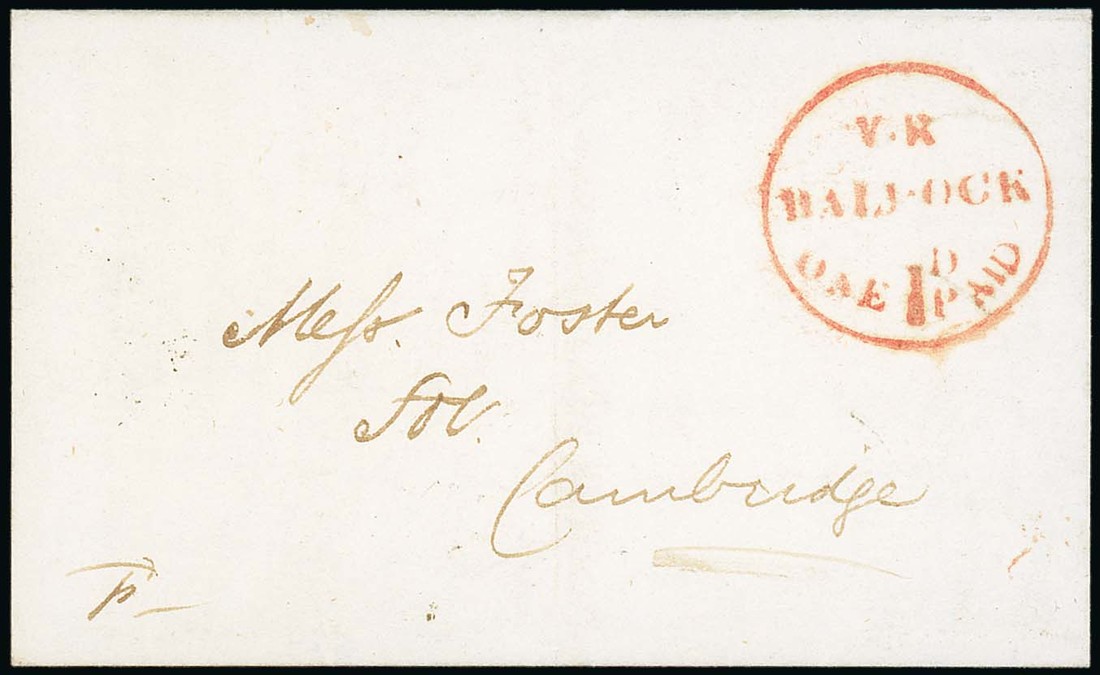 V.R
BALDOCK
1D
ONE PAID
Mess. Foster
Sol.
Cambridge
P